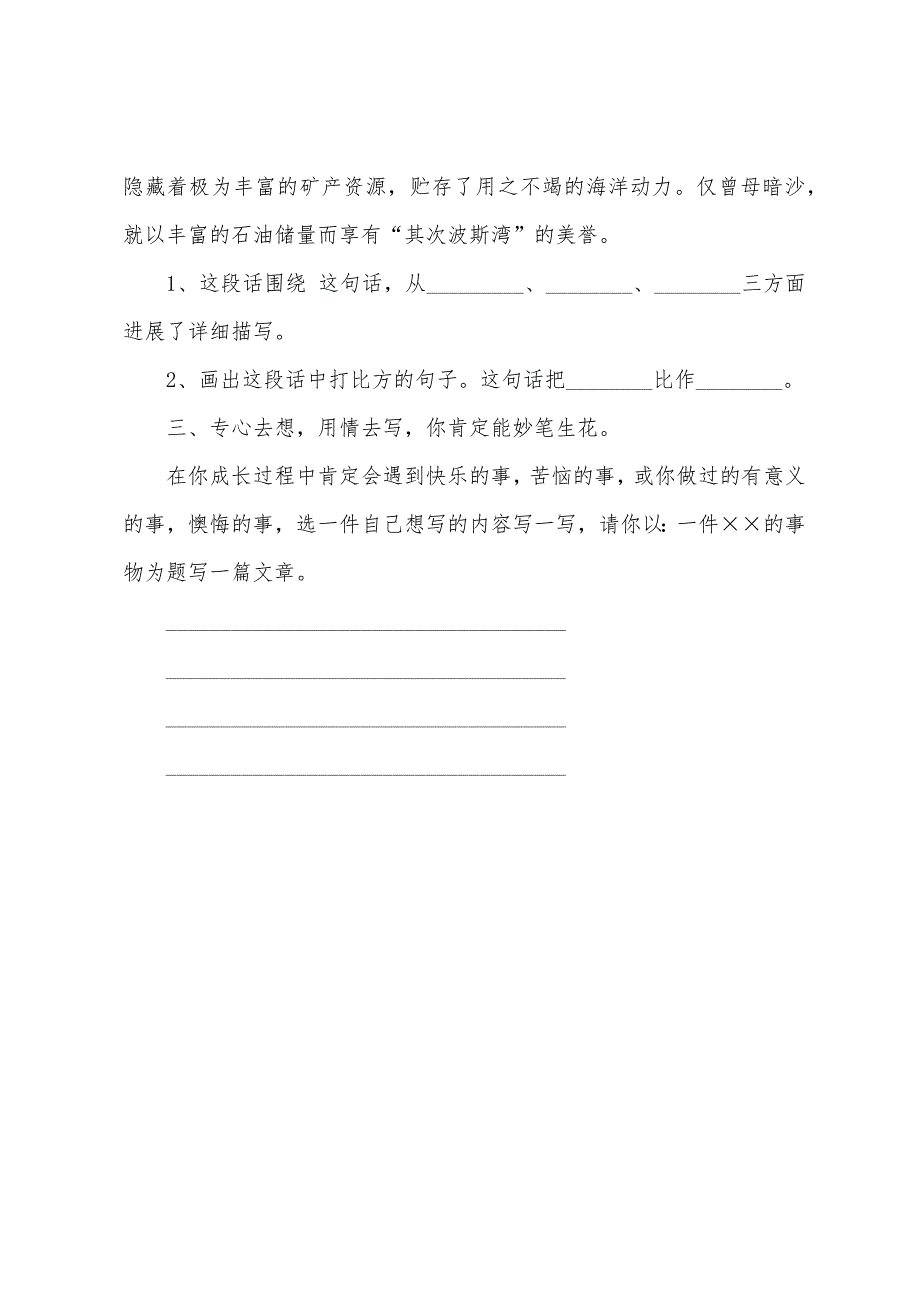 隐藏着极为丰富的矿产资源，贮存了用之不竭的海洋动力。仅曾母暗沙，
就以丰富的石油储量而享有“其次波斯湾”的美誉。
1、这段话围绕 这句话，从_________、________、________三方面
进展了详细描写。
2、画出这段话中打比方的句子。这句话把________比作________。
三、专心去想，用情去写，你肯定能妙笔生花。
在你成长过程中肯定会遇到快乐的事，苦恼的事，或你做过的有意义
的事，懊悔的事，选一件自己想写的内容写一写，请你以：一件××的事
物为题写一篇文章。
_____________________________________
_____________________________________
_____________________________________
_____________________________________